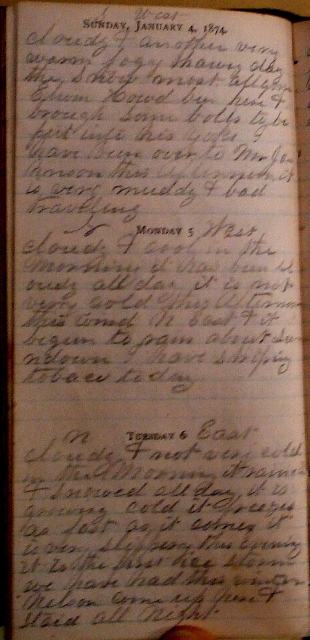 S West
SUNDAY, JANUARY 4, 1874
cloudy & another very
warm fogy thawing day
the snow most all gon
Edwin Howd ben here &
brough some bolts to be
put into his
I have ben over to Mr
this afternoon it
is very muddy & bad
traveling
S MONDAY 5 West
cloudy & cool in the
morning it has ben cl
oudy all day it is not
very cold this afternoon
this wind N East & it
begun to rain about sun
ndown I have striping
tobaco today
N TUESDAY 6 East
cloudy & not very cold
in the morning it rained
& snowed all day it is
growing cold it freezes
as fast as it comes it
is very slippery this evening
it is the first hay storm
we have had this winter
Nelson come up here &
staid all night